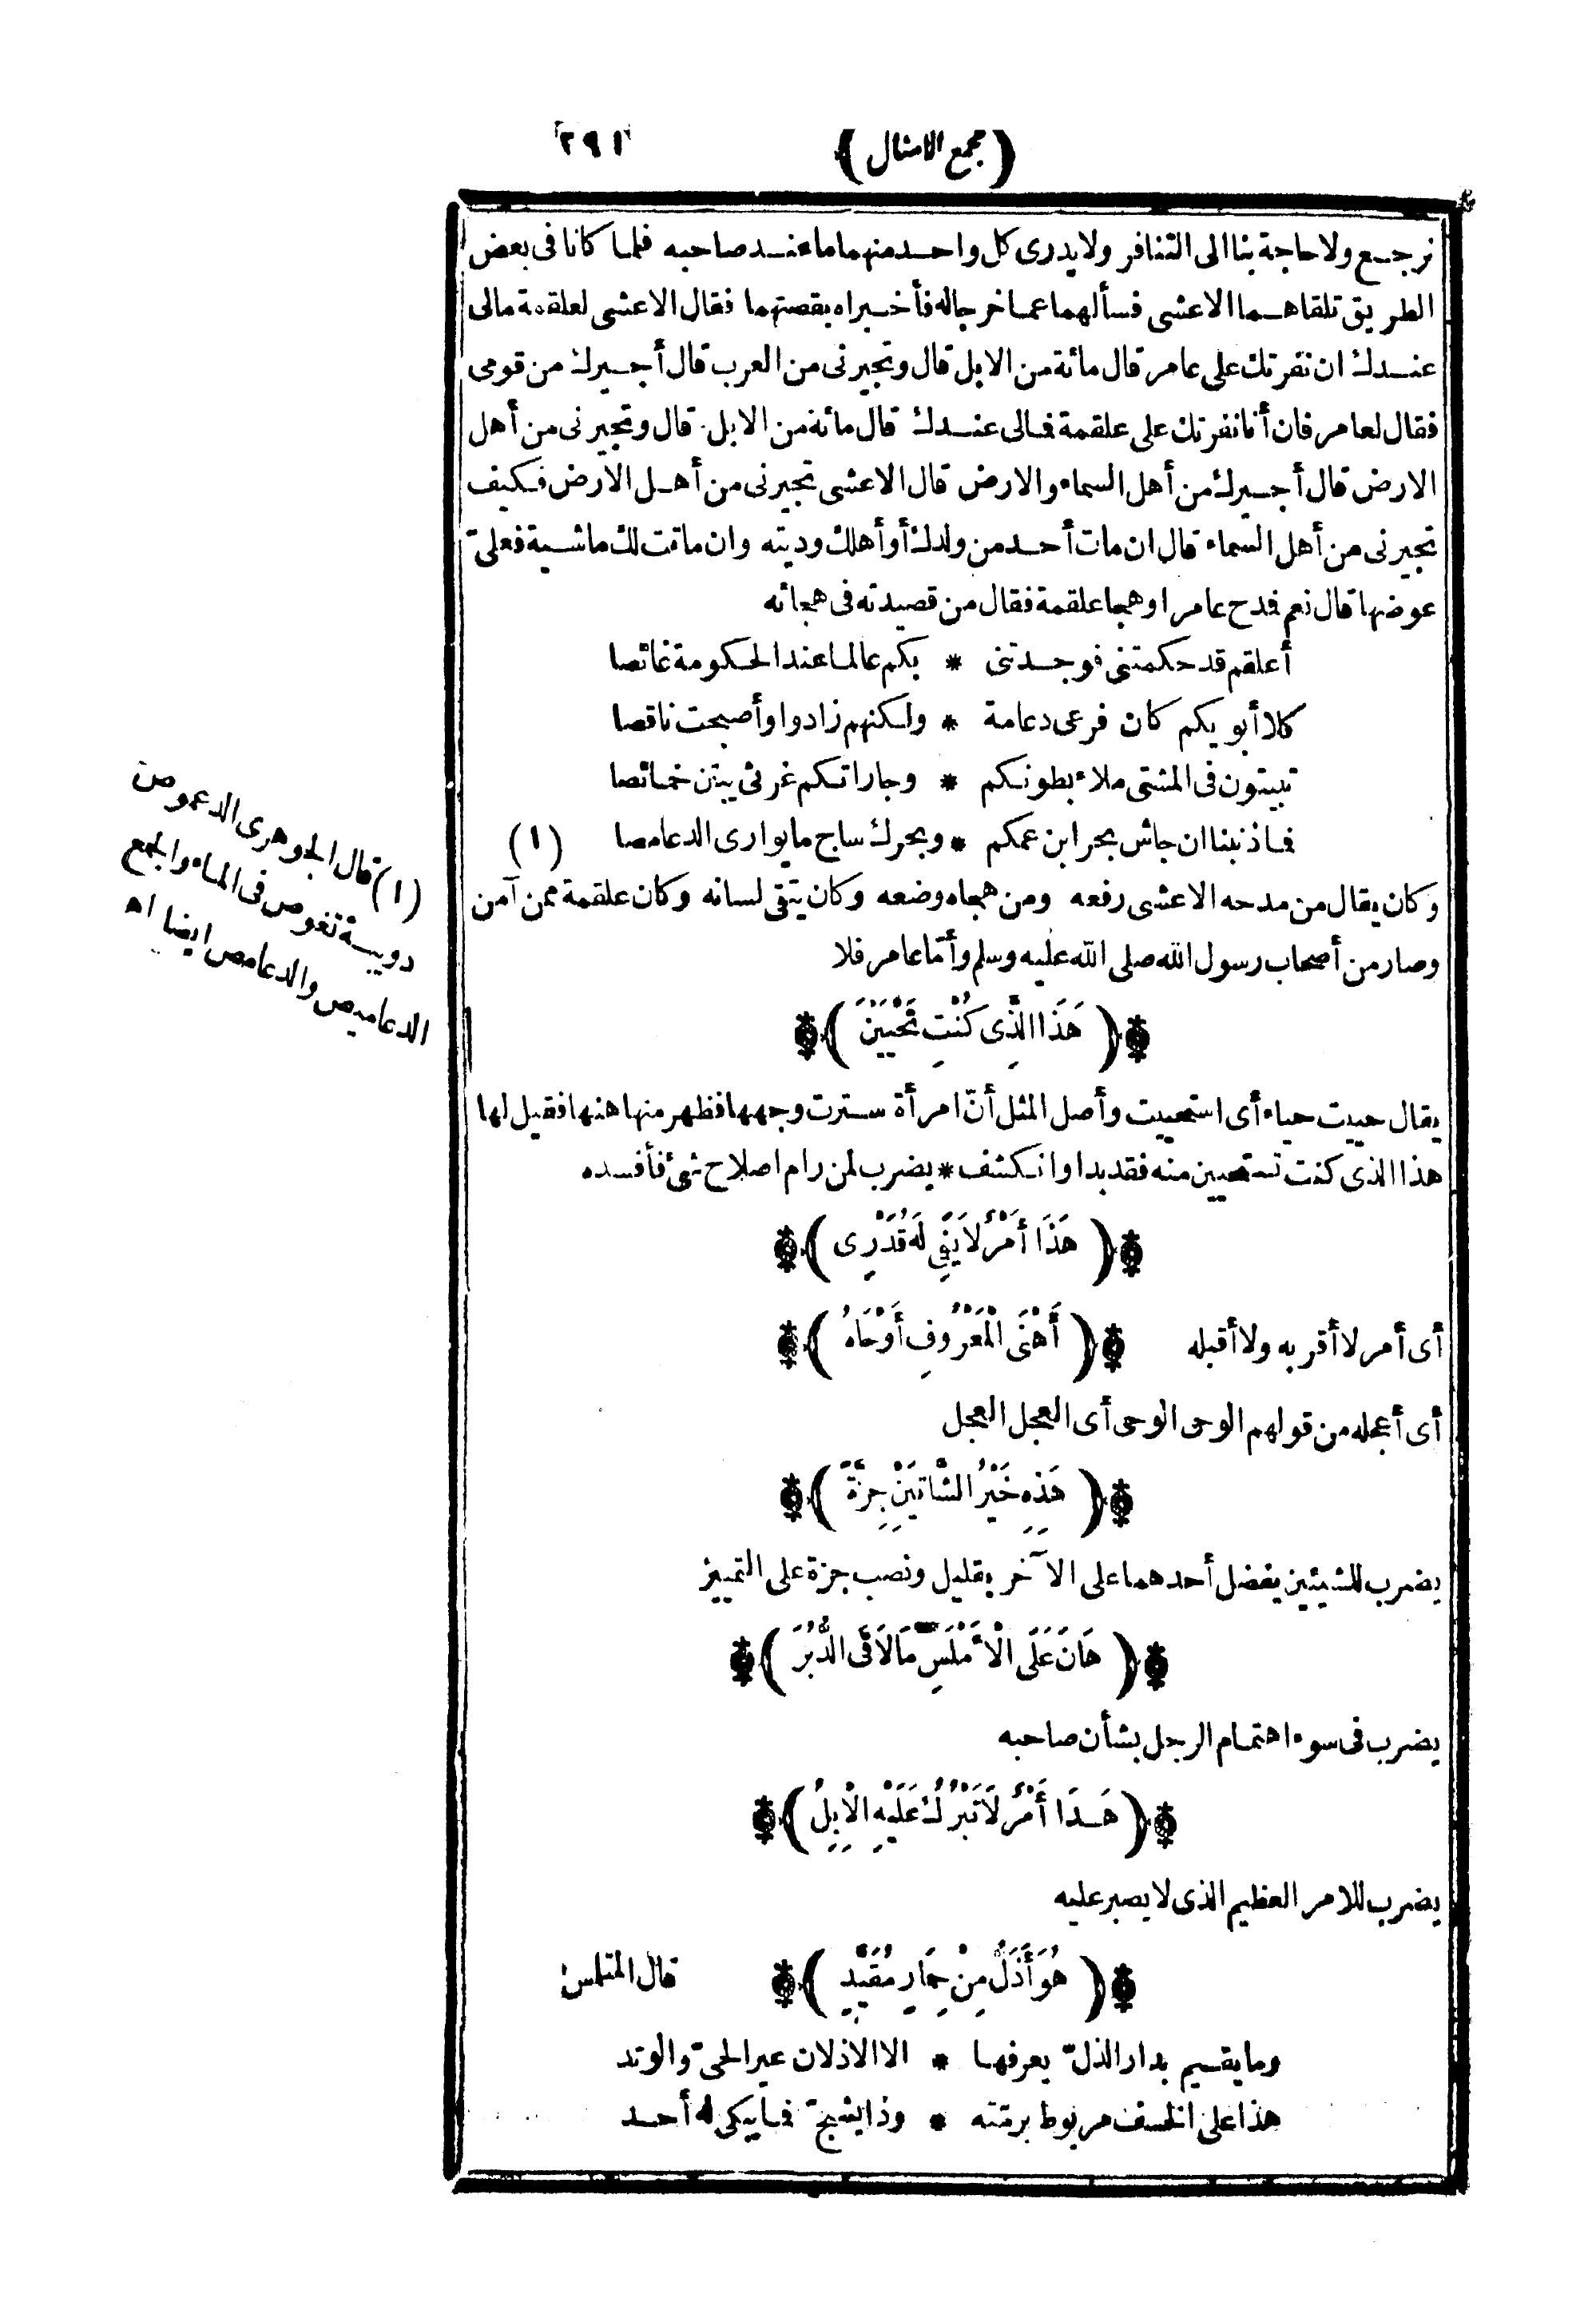 (مجمع الامثال) ٢٩١
نرجع ولا حاجة بنا الى التنافر ولا يدرى كل واحد منهما ما عند صاحبه فلما كانا فى بعض
الطريق تلقاهما الاعشى فسألهما عما خرجا له فأخبراه بقصتهما فقال الاعشى لعلقمة مالى
عندك ان نفرتك على عامر قال مائة من الابل قال وتجيرنى من العرب قال أجيرك من قومى
فقال لعامر فان أنا نفرتك على علقمة فمالى عندك قال مائة من الابل قال وتجيرنى من أهل
الارض قال أجيرك من أهل السماء والارض قال الاعشى تجيرنى من أهل الارض فكيف
تجيرنى من أهل السماء قال ان مات أحد من ولدك أو أهلك وديته وان ماتت لك ماشية فعلىّ
عوضها قال نعم فمدح عامرا وهجا علقمة فقال من قصيدته فى هجائه
أعلقم قد حكمتنى فوجدتنى * بكم عالما عند الحكومة غائصا
كلا أبويكم كان فرعى دعامة * ولكنهم زادوا وأصبحت ناقصا
تبيتون فى المشتى ملاء بطونكم * وجاراتكم غرثى يبتن خمائصا
فما ذنبنا ان جاش بحر ابن عمكم * وبحرك ساج ما يوارى الدعامصا (١)
وكان يقال من مدحه الاعشى رفعه ومن هجاه وضعه وكان يتقى لسانه وكان علقمة ممن آمن
وصار من أصحاب رسول الله صلى الله عليه وسلم وأمّا عامر فلا
(هَذَا الَّذِى كُنْتِ تَحْيَيْنَ)
يقال حييت حياء أى استحييت وأصل المثل أنّ امرأة سترت وجهها فظهر منها هنها فقيل لها
هذا الذى كنت تستحيين منه فقد بدا وانكشف * يضرب لمن رام اصلاح شئ فأفسده
(هَذَا أَمْرٌ لَا يَفِى لَهُ قَدْرِى)
أى أمر لا أقر به ولا أقبله (أَهْنَى الْمَعْرُوفِ أَوْحَاهُ)
أى أعجله من قولهم الوحى الوحى أى العجل العجل
(هَذِهِ خَيْرُ الشَّاتَيْنِ جِزَّةً)
يضرب للشيئين يفضل أحدهما على الآخر بقليل ونصب جزة على التمييز
(هَانَ عَلَى الْأَمْلَسِ مَا لَاقَى الدَّبِرُ)
يضرب فى سوء اهتمام الرجل بشأن صاحبه
(هَذَا أَمْرٌ لَا تَبْرُكُ عَلَيْهِ الْإِبِلُ)
يضرب للامر العظيم الذى لا يصبر عليه
(هُوَ أَذَلُّ مِنْ حِمَارٍ مُقَيَّدٍ) قال المتلمس
وما يقيم بدار الذلّ يعرفها * الا الاذلان عير الحىّ والوتد
هذا على الخسف مربوط برمته * وذا يشجّ فما يبكى له أحد
(١) قال الجوهرى الدعموص
دويبة تغوص فى الماء والجمع
الدعاميص والدعامص ايضا اه